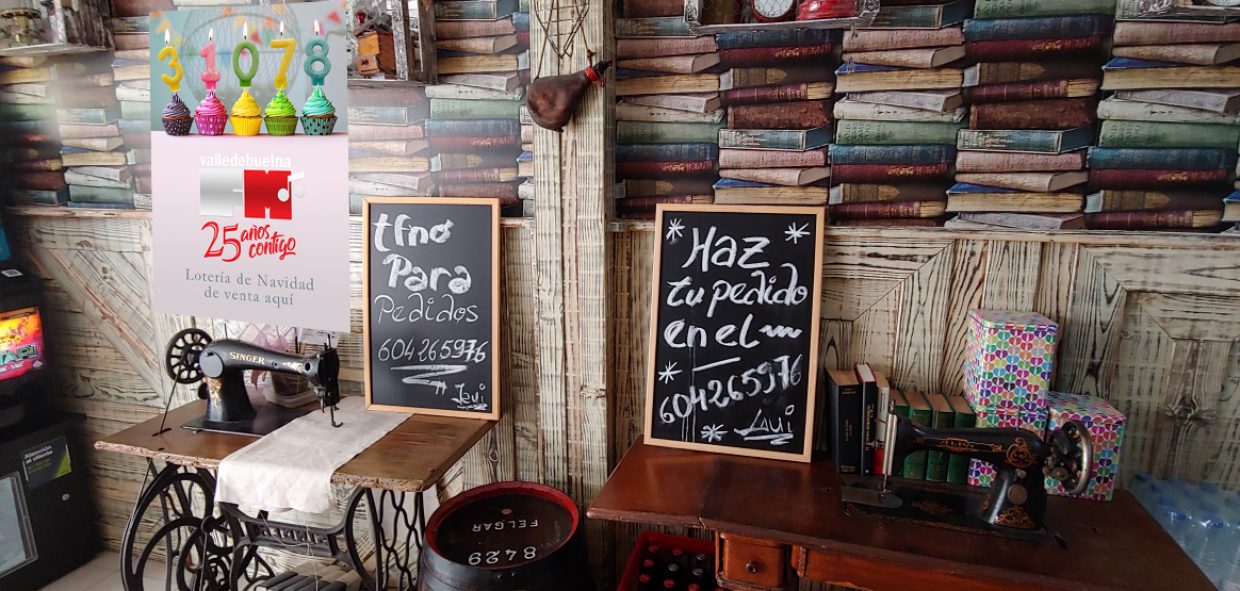 31078
valledebuelna
FM
25 años
contigo
Lotería de Navidad
de venta aquí
tfno
Para
Pedidos
604265976
Javi
Haz
tu pedido
en el
604265976
Javi
SINGER
ALFA
FELGAR
8429
Atención
al cliente